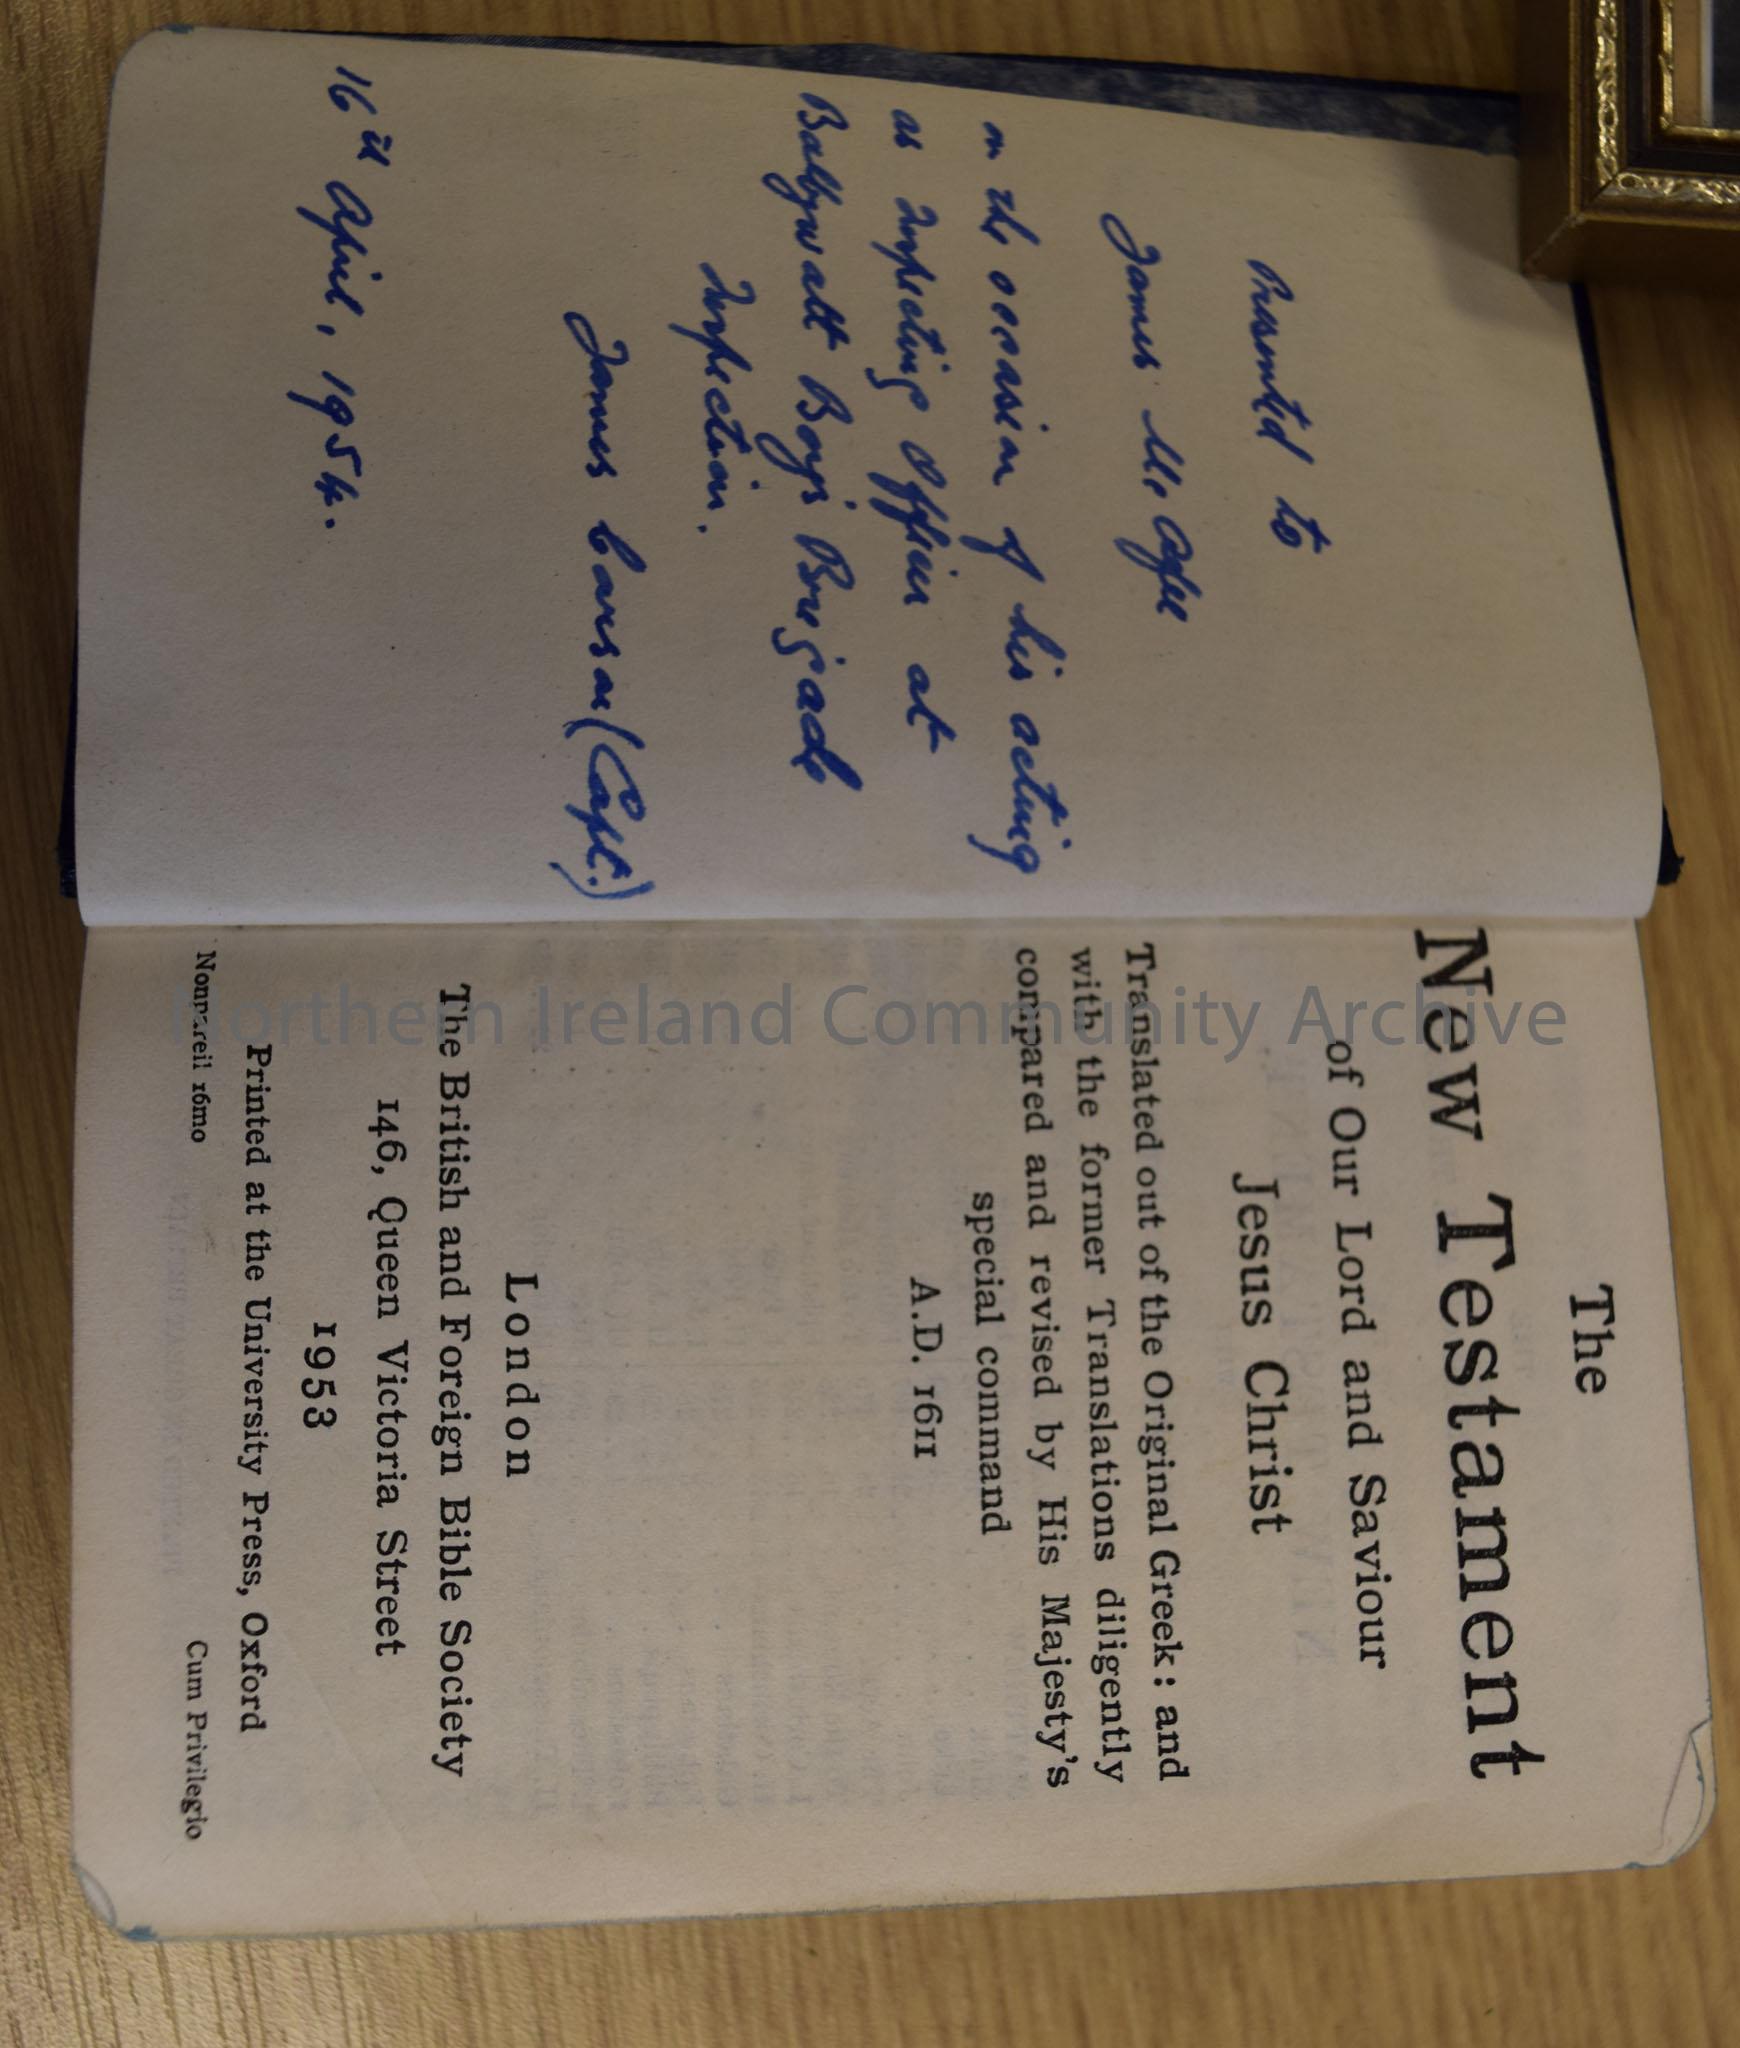 Presented to
James McAfee
on the occasion of his acting
as Inspecting Officer at
Ballywatt Boys' Brigade
Inspection.
James Carson (Capt.)
16th April, 1954.
The
New Testament
of Our Lord and Saviour
Jesus Christ
Translated out of the Original Greek: and
with the former Translations diligently
compared and revised by His Majesty's
special command
A.D. 1611
London
The British and Foreign Bible Society
146, Queen Victoria Street
1953
Printed at the University Press, Oxford
Nonpareil 16mo Cum Privilegio
Northern Ireland Community Archive